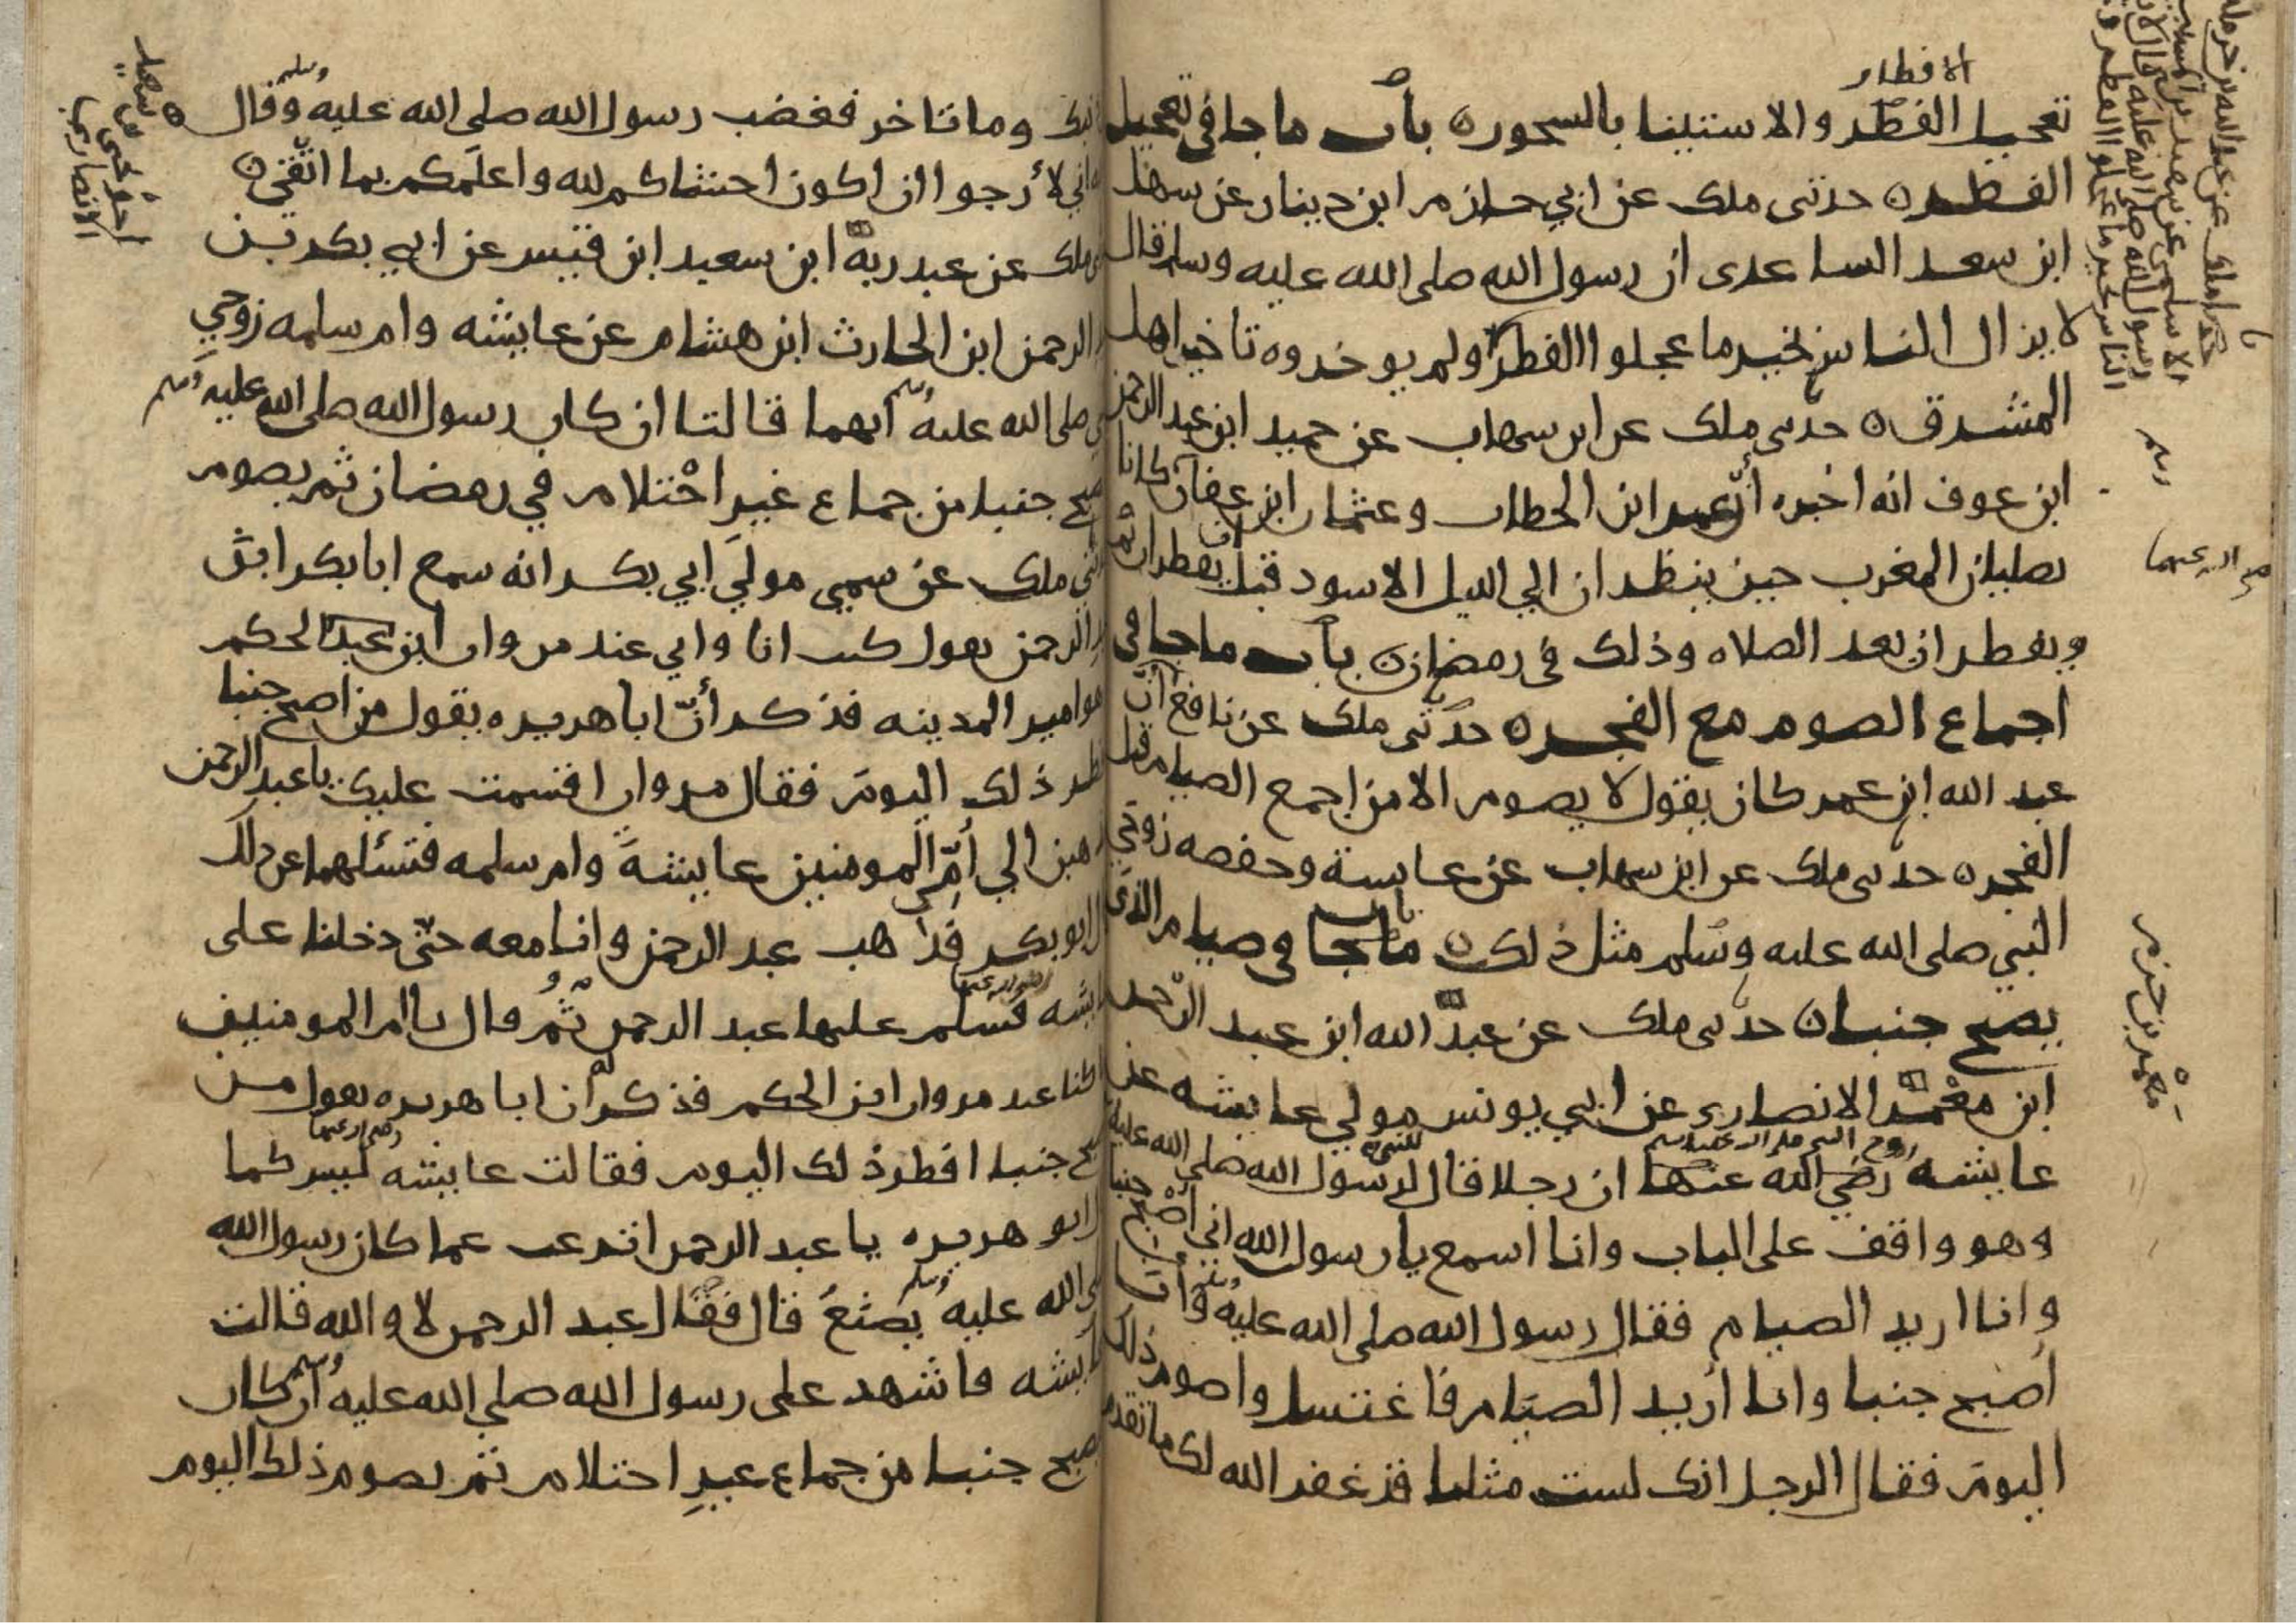 الافطار
تعجيل الفطر والاستينا بالسحور ه باب ما جا في تعجيل
الفطر ه حدثني ملك عن ابي حازم ابن دينار عن سهل
ابن سعد الساعدى ان رسول الله صلى الله عليه وسلم قال
لا يزال الناس بخير ما عجلوا الفطر ولم يوخروه تاخير اهل
المشرق ه حدثنى ملك عن ابن شهاب عن حميد ابن عبد الرحمن
ابن عوف انه اخبره أن عمر ابن الخطاب وعثمان ابن عفان كانا
يصليان المغرب حين ينظران الي الليل الاسود قبل ان يفطرا ثم
ويفطران بعد الصلاه وذلك في رمضان ه باب ما جا في
اجماع الصوم مع الفجر ه حدثنى ملك عن نافع أن
عبد الله ابن عمر كان يقول لا يصوم الا من اجمع الصيام قبل
الفجر ه حدثنى ملك عن ابن شهاب عن عايشة وحفصه زوجي
النبي صلى الله عليه وسلم مثل ذلك ه باب ما جا في صيام الذي
يصبح جنبا ه حدثنى ملك عن عبد الله ابن عبد الرحمن
ابن معمر الانصارى عن ابي يونس مولي عايشه عن
زوج النبي صلى الله عليه وسلم للنبي
عايشه رضي الله عنها ان رجلا قال لرسول الله صلى الله عليه
وهو واقف على الباب وانا اسمع يا رسول الله اني أصبح جنبا
وانا اريد الصيام فقال رسول الله صلى الله عليه وسلم وأنا
أصبح جنبا وانا أريد الصيام فاغتسل واصوم ذلك
اليوم فقال الرجل انك لست مثلنا قد غفر الله لك ما تقدم
وسلم
رضي الله عنهما
محمد بن حزم
حدثنا ملك عن عبد الله بن حرمله
الاسلمى عن سعيد بن المسيب
رسول الله صلى الله عليه قال لا
الناس بخير ما عجلوا الفطر و
ذنبك وما تاخر فغضب رسول الله صلى الله عليه وسلم وقال
اني لأرجوا ان اكون اخشاكم لله واعلمكم بما اتقي ه
ملك عن عبد ربه ابن سعيد ابن قيس عن ابي بكر بن
الرحمن ابن الحارث ابن هشام عن عايشه وام سلمه زوجي
صلى الله عليه وسلم أنهما قالتا ان كان رسول الله صلى الله عليه وسلم
يصبح جنبا من جماع غير احْتلام في رمضان ثم يصوم
ملك عن سمي مولي ابي بكر انه سمع ابا بكر ابن
الرحمن يقول كنت انا وابي عند مروان ابن عبد الحكم
هوامير المدينه فذكر أنّ ابا هريره يقول من اصبح جنبا
افطر ذلك اليوم فقال مروان اقسمت عليك يا عبد الرحمن
لتذهبن الي أمّي المومنين عايشة وام سلمه فتسئلهما عن ذلك
ابو بكر فذهب عبد الرحمن وانا معه حتّى دخلنا على
رضى الله عنها
عايشه فسلم عليها عبد الرحمن ثُمّ قال يا ام المومنين
كنا عند مروان ابن الحكم فذكر أن ابا هريره يقول من
رضى الله عنها
أصبح جنبا افطر ذلك اليوم فقالت عايشه ليس كما
قال ابو هريره يا عبد الرحمن اترغب عما كان رسول الله
صلى الله عليه وسلم يصنع قال فقال عبد الرحمن لا والله قالت
عايشه فاشهد على رسول الله صلي الله عليه وسلم أن كان
يصبح جنبا من جماع غير احتلام ثم يصوم ذلك اليوم
سعيد
اخو يحيى بن
الانصاري